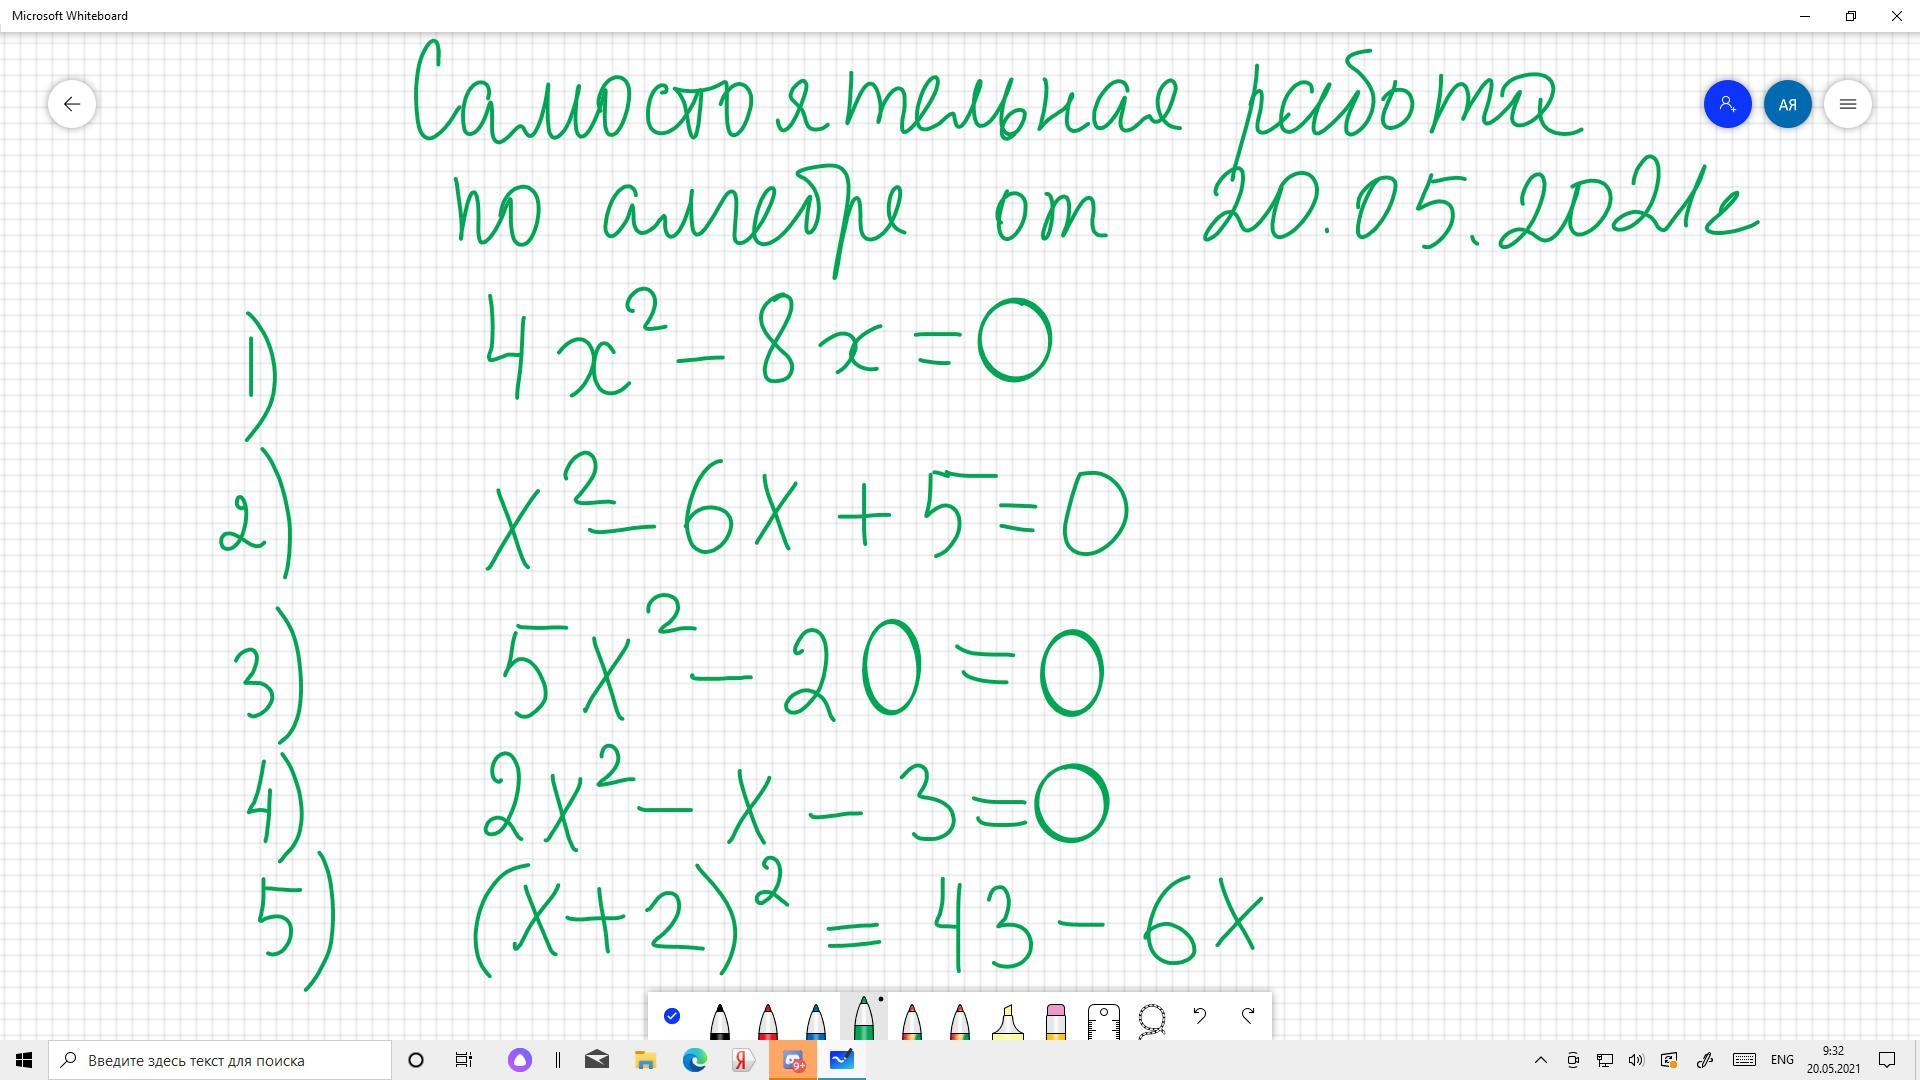 Microsoft Whiteboard
Самостоятельная работа
по алгебре от 20.05.2021г
АЯ
1) 4x² - 8x = 0
2) x² - 6x + 5 = 0
3) 5x² - 20 = 0
4) 2x² - x - 3 = 0
5) (x + 2)² = 43 - 6x
Введите здесь текст для поиска
Я
9+
ENG
9:32
20.05.2021